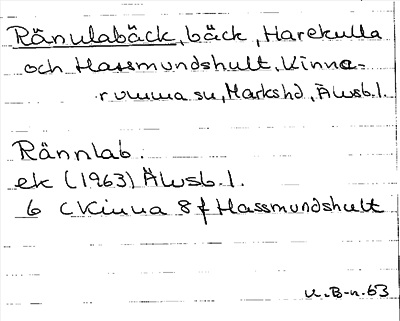 Ränulabäck, bäck, Harekulla
och Hassmundshult, Kinna-
rumma sn, Markshd, Älvsb.l.
Rännlab.
ek (1963) Älvsb.l.
6 C Kinna 8 f Hassmundshult
U.B-n.63